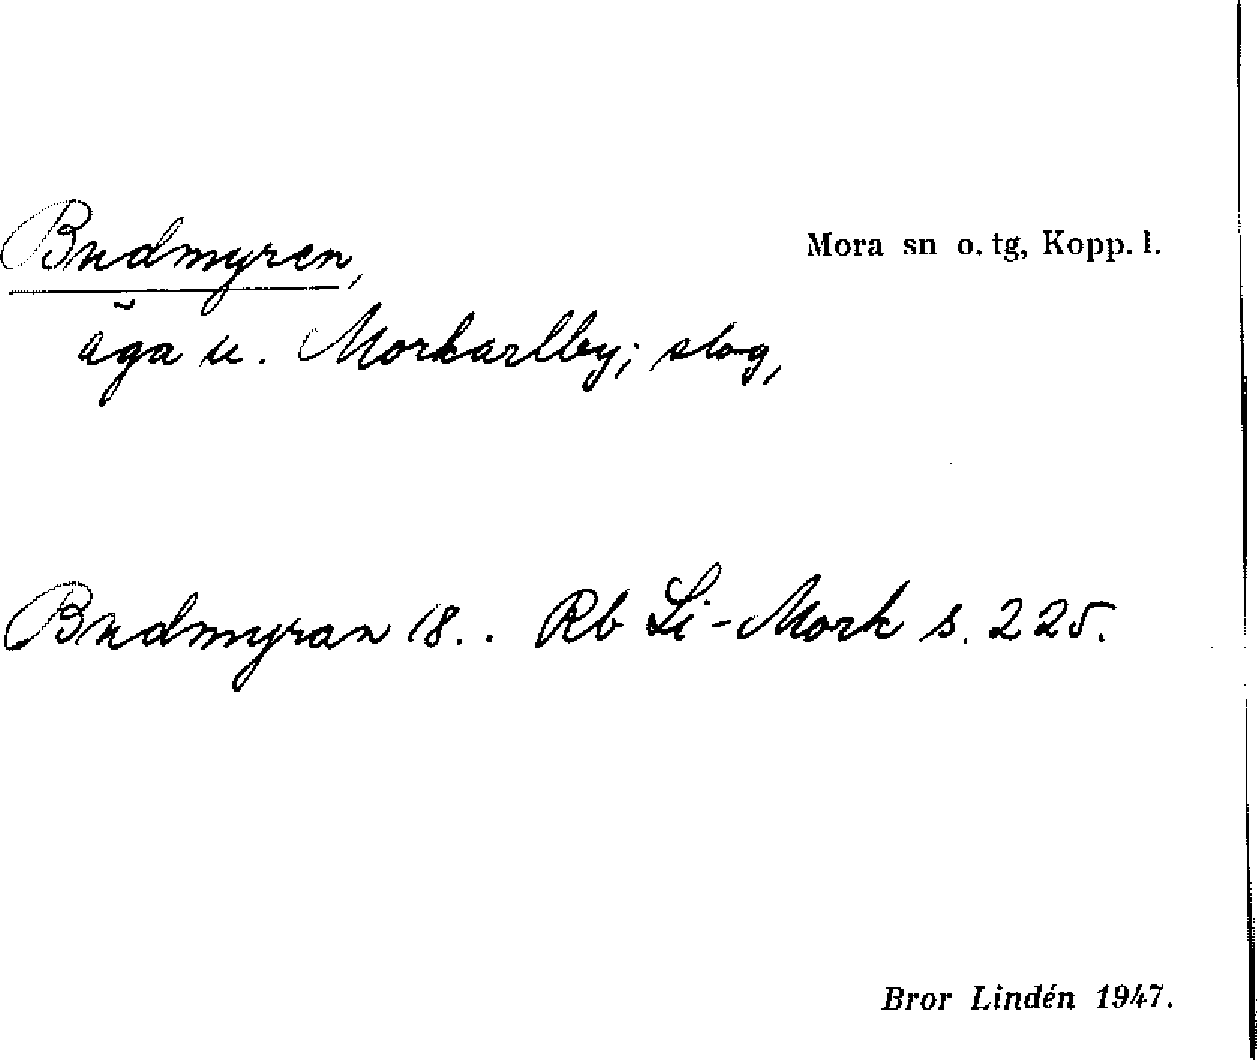 Budmyren,
Mora sn o. tg, Kopp. l.
äga u. Morkarlby; slog,
Budmyran 18.. Rb Li-Mork s. 225.
Bror Lindén 1947.